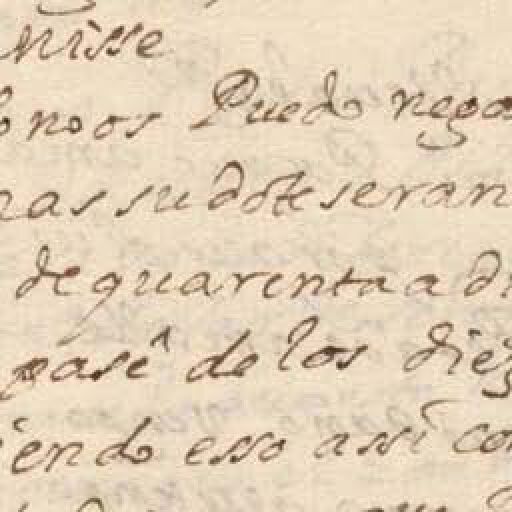 nisse
no os Puedo nega
as su dote seran
de quarenta a di
pasè de los diez
iendo esso assi co